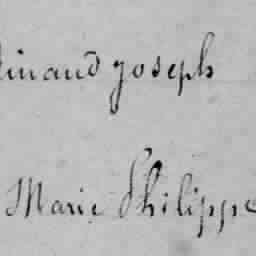 dinand joseph
Marie Philippe